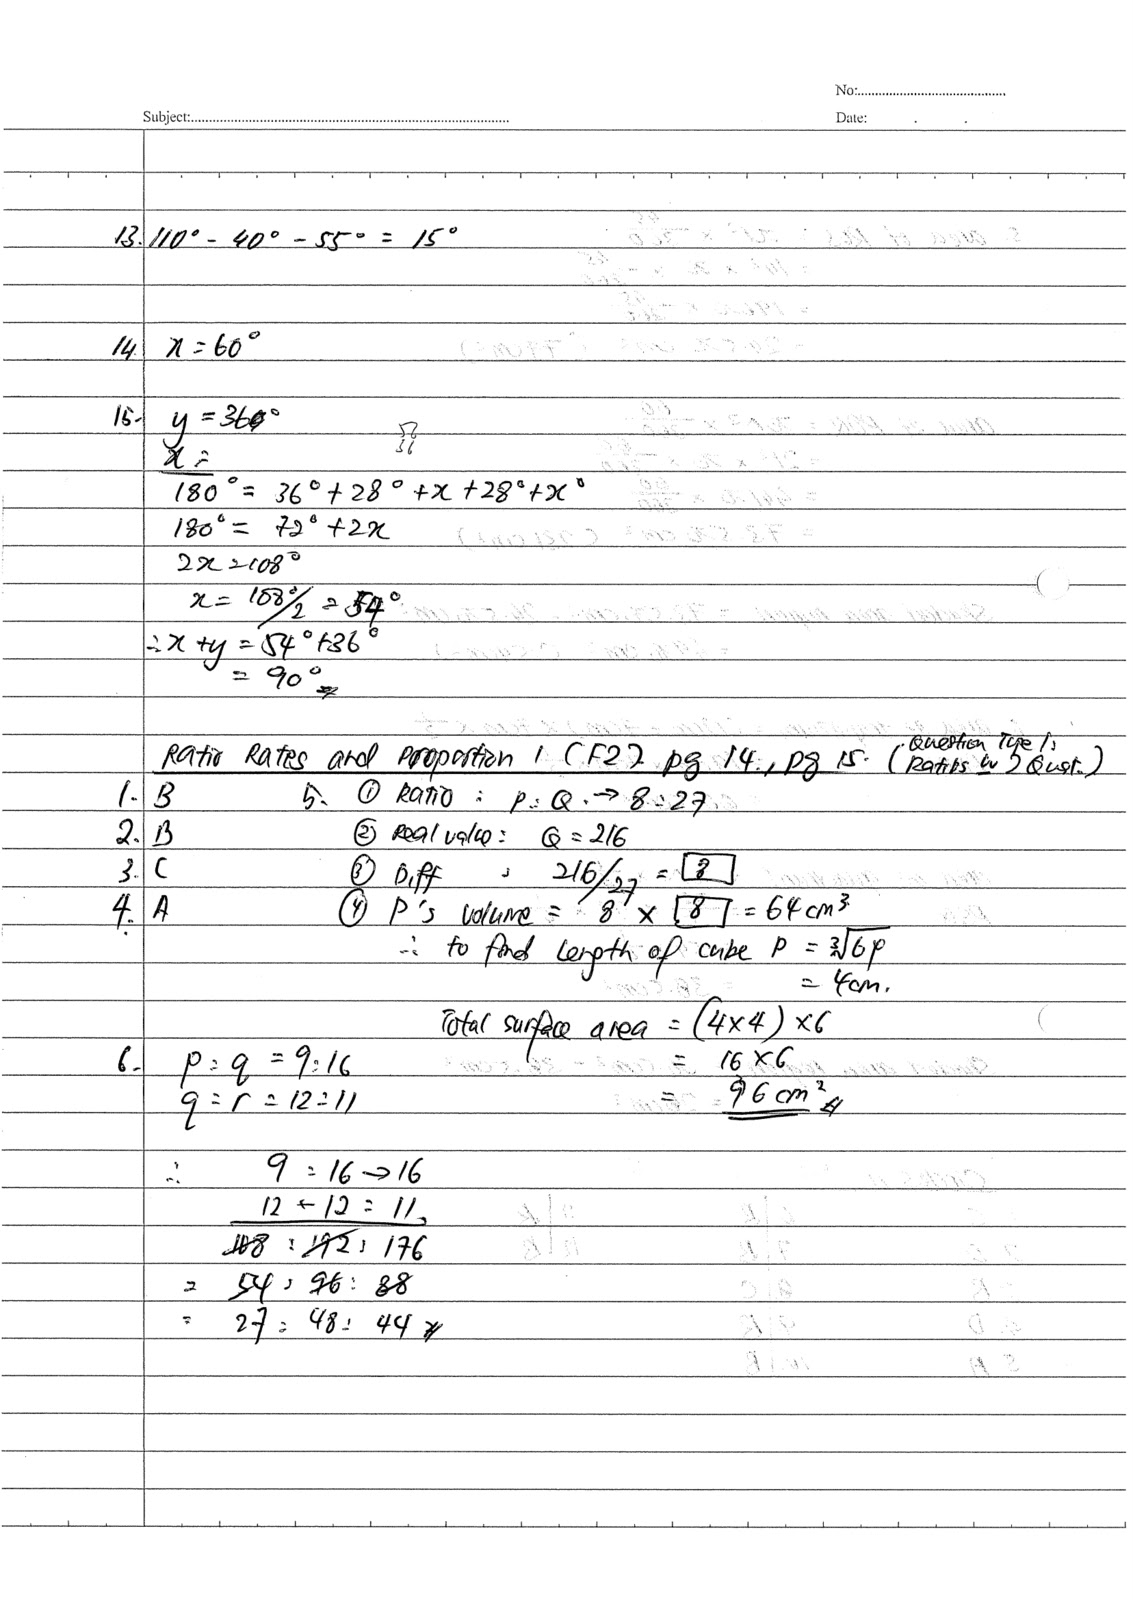 No:
Subject:
Date:
13. 110° - 40° - 55° = 15°
14. x = 60°
15. y = 36°
56
36
x =
180° = 36° + 28° + x + 28° + x°
180° = 72° + 2x
2x = 108°
x = 108°/2 = 54°
∴ x + y = 54° + 36°
= 90°
Ratio Rates and Proportion 1 (F2) pg 14., pg 15. (Question Type 1: Ratios w) 2 Qust.)
1. B
2. B
3. C
4. A
5. ① Ratio : P : Q → 8 : 27
② Real value : Q = 216
③ Diff : 216/27 = 8
④ P's volume = 8 × 8 = 64 cm³
∴ to find length of cube P = ∛64
= 4cm.
Total surface area = (4×4) × 6
= 16 × 6
= 96 cm²
6. p : q = 9 : 16
q : r = 12 : 11
∴ 9 : 16 → 16
12 ← 12 : 11
108 : 192 : 176
= 54 : 96 : 88
= 27 : 48 : 44